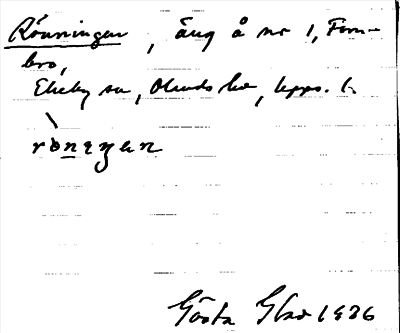 Rönningen, Äng å nr 1, Forn-
bro,
Ekeby sn, Olands hd, Upps. l.
rö̀nıŋen
Gösta Glad 1926